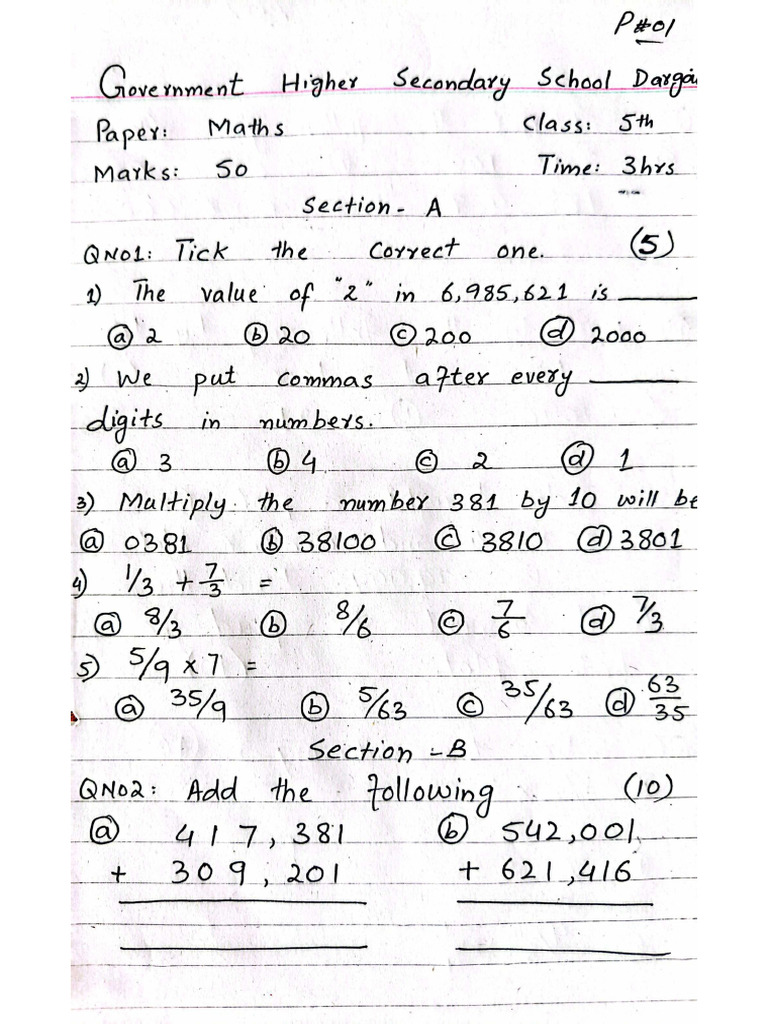 P#01
Government Higher Secondary School Dargai
Paper: Maths Class: 5th
Marks: 50 Time: 3hrs
Section - A
QNO1: Tick the correct one. (5)
1) The value of "2" in 6,985,621 is ______
ⓐ 2 ⓑ 20 ⓒ 200 ⓓ 2000
2) We put commas after every ______
digits in numbers.
ⓐ 3 ⓑ 4 ⓒ 2 ⓓ 1
3) Multiply the number 381 by 10 will be
ⓐ 0381 ⓑ 38100 ⓒ 3810 ⓓ 3801
4) 1/3 + 7/3 =
ⓐ 8/3 ⓑ 8/6 ⓒ 7/6 ⓓ 7/3
5) 5/9 x 7 =
ⓐ 35/9 ⓑ 5/63 ⓒ 35/63 ⓓ 63/35
Section - B
QNO2: Add the following (10)
ⓐ 417,381 ⓑ 542,001
+ 309,201 + 621,416